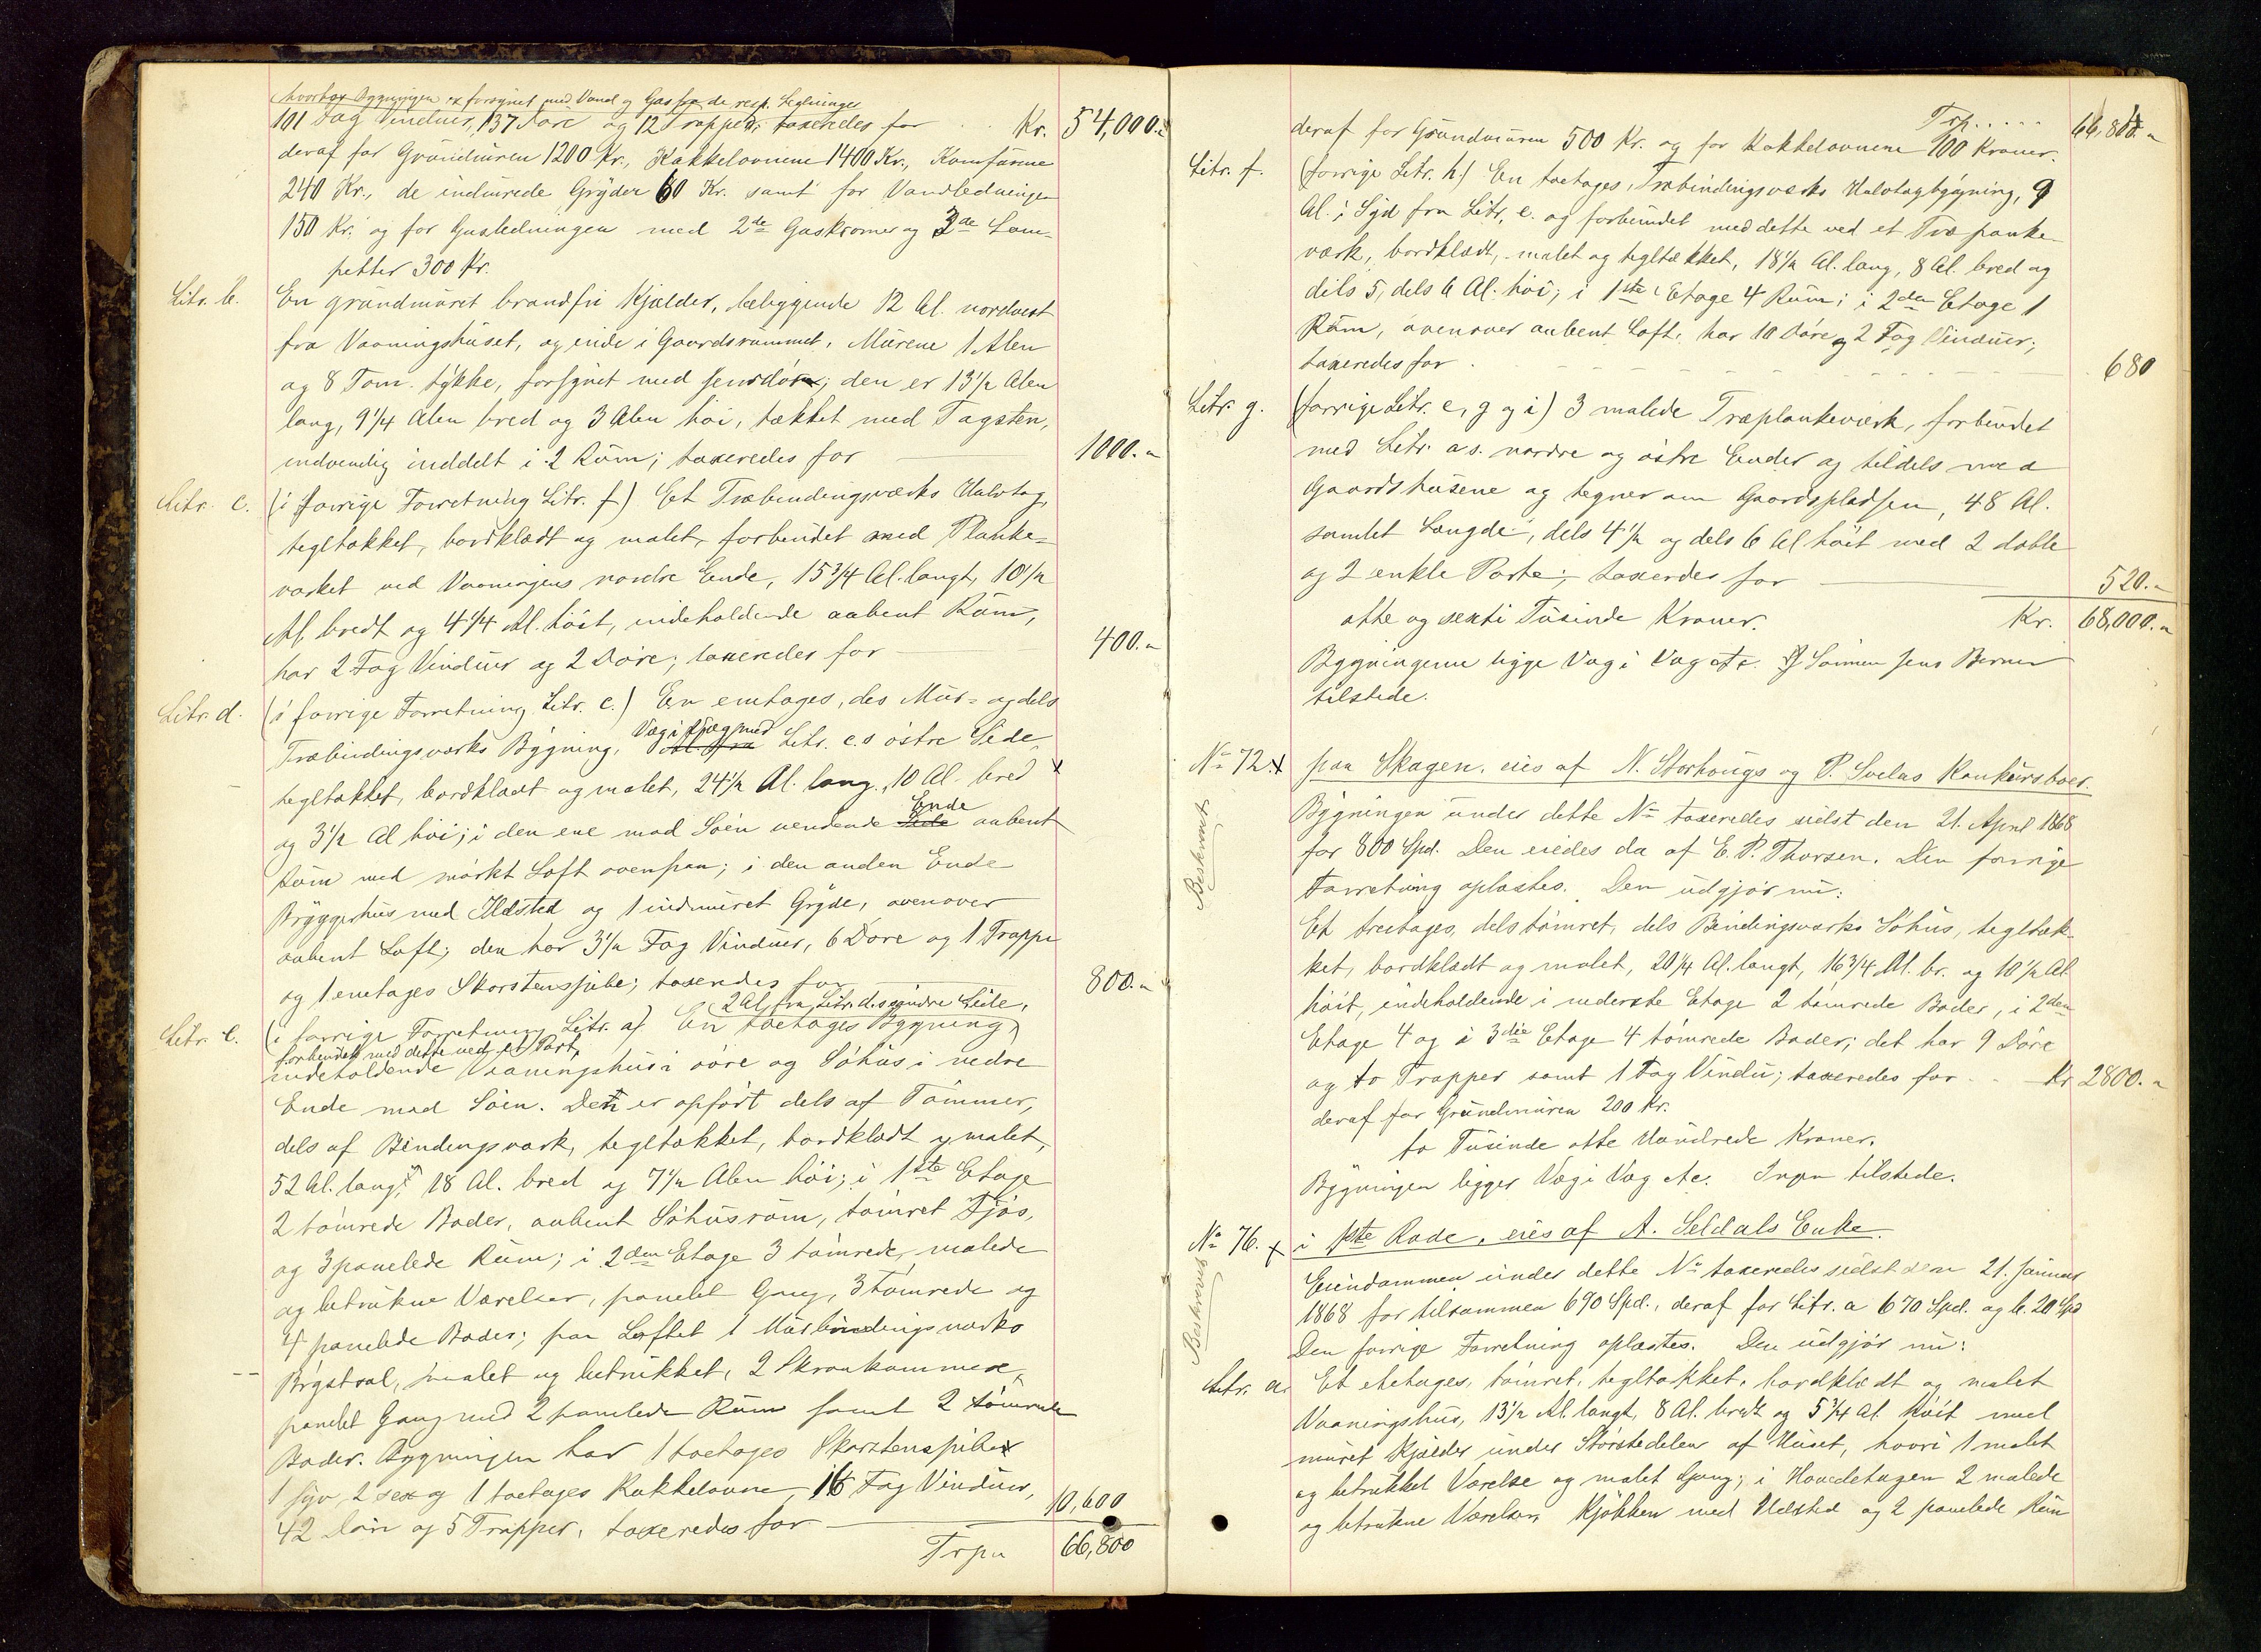 hvorhos Bygningen er forsynet med Vand og Gas fra de resp. Ledninger
101 Fag Vinduer, 137 Döre og 12 Trapper, taxeredes for . . Kr. 54,000.„
deraf for Grundmuren 1200 Kr., Kakkelovnene 1400 Kr., Komfurene
240 Kr., de indmurede Gryder 60 Kr. samt for Vandledningen
150 Kr. og for Gasledningen med 2de Gaskroner og 3de Lam-
petter 300 Kr.
Litr. b. En grundmuret brandfri Kjælder, beliggende 12 Al. nordvest
fra Vaaningshuset, og inde i Gaardsrummet, Murene 1 Alen
og 8 Tom. tykke, forsynet med Jerndör; den er 13½ Alen
lang, 9¼ Alen bred og 3 Alen höi, tækket med Tagsten,
indvendig inddelt i 2 Rum; taxeredes for 1000.„
Litr. c. (i forrige Forretning Litr. f) Et Træbindingsværks Halvtag,
tegltækket, bordklædt og malet, forbundet med Planke-
værket ved Vaaningens nordre Ende, 15¾ Al. langt, 10½
Al. bredt og 4¼ Al. höit, indeholdende aabent Rum,
har 2 Fag Vinduer og 2 Döre; taxeredes for 400.„
Litr. d. (i forrige Forretning Litr. c.) En enetages, des Mur- og dels
Træbindingsværks Bygning, Væg i Væg med Litr. c.s östre Side,
tegltækket, bordklædt og malet, 24½ Al. lang, 10 Al. bred
og 3½ Al höi; i den ene mod Söen vendende Side Ende aabent
Rum med mörkt Loft ovenpaa; i den anden Ende
Bryggerhus med Ildsted og 1 indmuret Gryde, ovenover
aabent Loft; den har 3½ Fag Vinduer, 6 Döre og 1 Trappe
og 1 enetages Skorstenspibe; taxeredes for 800.„
2 Al. fra Litr. d.s söndre Side,
Litr. e. (i forrige Forretning Litr. a) En toetages Bygning,
forbundet med dette ved et Port,
indeholdende Vaaningshus i övre og Söhus i nedre
Ende mod Söen. Den er opfört dels af Tömmer,
dels af Bindingsværk, tegltækket, bordklædt og malet,
52 Al. lang, 18 Al. bred og 7½ Alen höi; i 1ste Etage
2 tömrede Boder, aabent Söhusrum, tömret Fjös,
og 3 panelede Rum; i 2den Etage 3 tömrede, malede
og betrukne Værelser, panelet Gang, 3 tömrede og
4 panelede Boder; paa Loftet 1 Murbindingsværks
Bygstval, malet og betrukket, 2 Skraakammere,
panelet Gang med 2 panelede Rum samt 2 tömrede
Boder. Bygningen har 1 toetages Skorstenspibe
1 syv, 2 sex og 1 toetages Kakkelovne, 16 Fag Vinduer,
42 Döre og 5 Trapper, taxeredes for 10,600
Trpr 66,800
Trp. . . . . . 66,800.„
deraf for Grundmuren 500 Kr. og for Kakkelovnene 100 Kroner.
Litr. f. (forrige Litr. h.) En toetages, Træbindingsværks Halvtagbygning, 9
Al. i Syd fra Litr. e. og forbundet med dette ved et Træplanke-
værk, bordklædt, malet og tegltækket, 18½ Al. lang, 8 Al. bred og
dels 5, dels 6 Al. höi; i 1ste Etage 4 Rum; i 2den Etage 1
Rum, ovenover aabent Loft, har 10 Döre og 2 Fag Vinduer;
taxeredes for . 680
Litr. g. (forrige Litr. e, g og i) 3 malede Træplankeværk, forbundet
med Litr. a s. nordre og östre Ender og tildels med
Gaardshusene og hegner om Gaardspladsen, 48 Al.
samlet Længde, dels 4½ og dels 6 Al höit med 2 doble
og 2 enkle Porte; taxeredes for 520.„
otte og sexti Tusinde Kroner. Kr. 68,000.„
Bygningerne ligge Væg i Væg etc. Sönnen Jens Berner
tilstede.
No 72. paa Skagen, eies af N. Storhougs og P. Svelas Konkursboer.
Beskrevet.
Bygningen under dette No taxeredes sidst den 21. April 1868
for 800 Spd. Den eiedes da af E. P. Thorsen. Den forrige
Forretning oplæstes. Den udgjör nu:
Et treetages, dels tömret, dels Bindingsværks Söhus, tegltæk-
ket, bordklædt og malet, 20¼ Al. langt, 16¾ Al. br. og 10½ Al.
höit, indeholdende i nederste Etage 2 tömrede Boder, i 2den
Etage 4 og i 3die Etage 4 tömrede Boder; det har 9 Döre
og to Trapper samt 1 Fag Vindu; taxeredes for . . Kr. 2800.„
deraf for Grundmuren 200 Kr.
to Tusinde otte Hundrede Kroner.
Bygningen ligger Væg i Væg etc. Ingen tilstede.
No 76. i 1ste Rode, eies af A. Seldals Enke.
Beskrevet
Eiendommen under dette No taxeredes sidst den 21. Januar
1868 for tilsammen 690 Spd., deraf for Litr. a 670 Spd. og b. 20 Spd
Den forrige Forretning oplæstes. Den udgjör nu:
Litr. a. Et etetages, tömret, tegltækket, bordklædt og malet
Vaaningshus, 13½ Al. langt, 8 Al. bredt og 5¾ Al. höit med
muret Kjælder under Störstedelen af Huset, hvori 1 malet
og betrukket Værelse og malet Gang; i Hovedetagen 2 malede
og betrukne Værelser, Kjökken med Ildsted og 2 panelede Rum